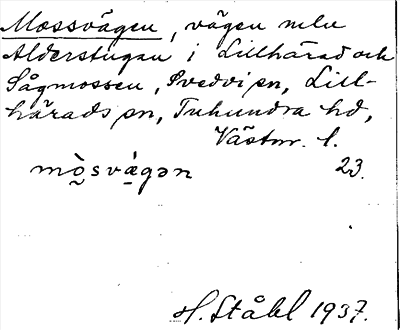 Mossvägen, vägen mln
Alderstugan i Lillhärad och
Sågmossen, Svedvi sn, Lill-
härads sn, Tuhundra hd,
Västm. l.
mo̊̀svä́gən 23.
H. Ståhl 1937.